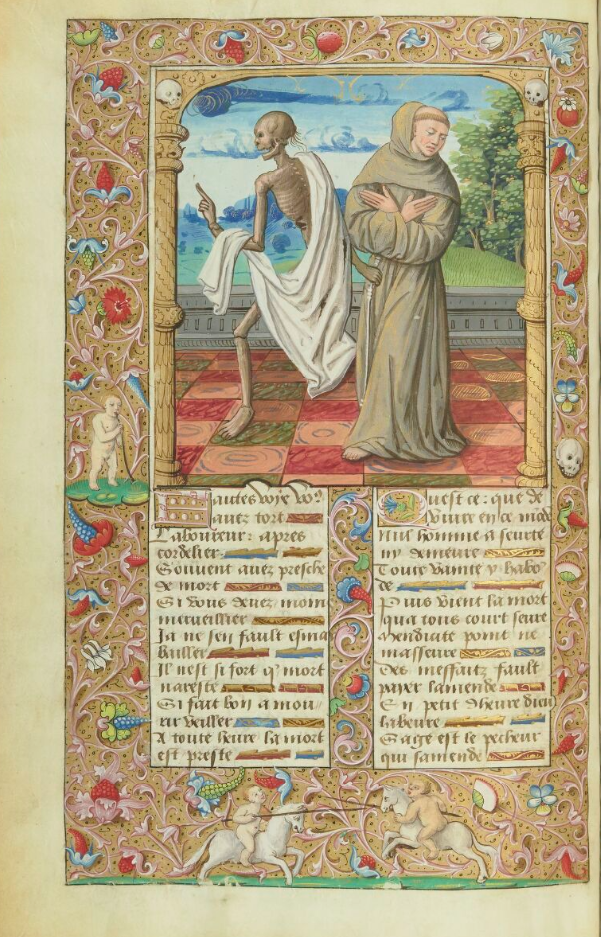 faictes voye vo9
auez tort
Laboureur: apres
cordelier
Souuent auez presche
de mort
Si vous deuez moins
merueillier
Ja ne sen fault esma
hailler
Il nest si fort q mort
nareste
Si fait bon a mou
rir veiller
A toute heure la mort
est preste
Quest ce: que de
viure en ce mōde
Nul homme a seurte
ny demeure
Toute vanite y habō
de
Puis vient la mort
qua tous court seure
Mendicite point ne
masseure
Des meffaitz fault
paier lamende
En petit dheure dieu
labeure
Sage est le pecheur
qui samende